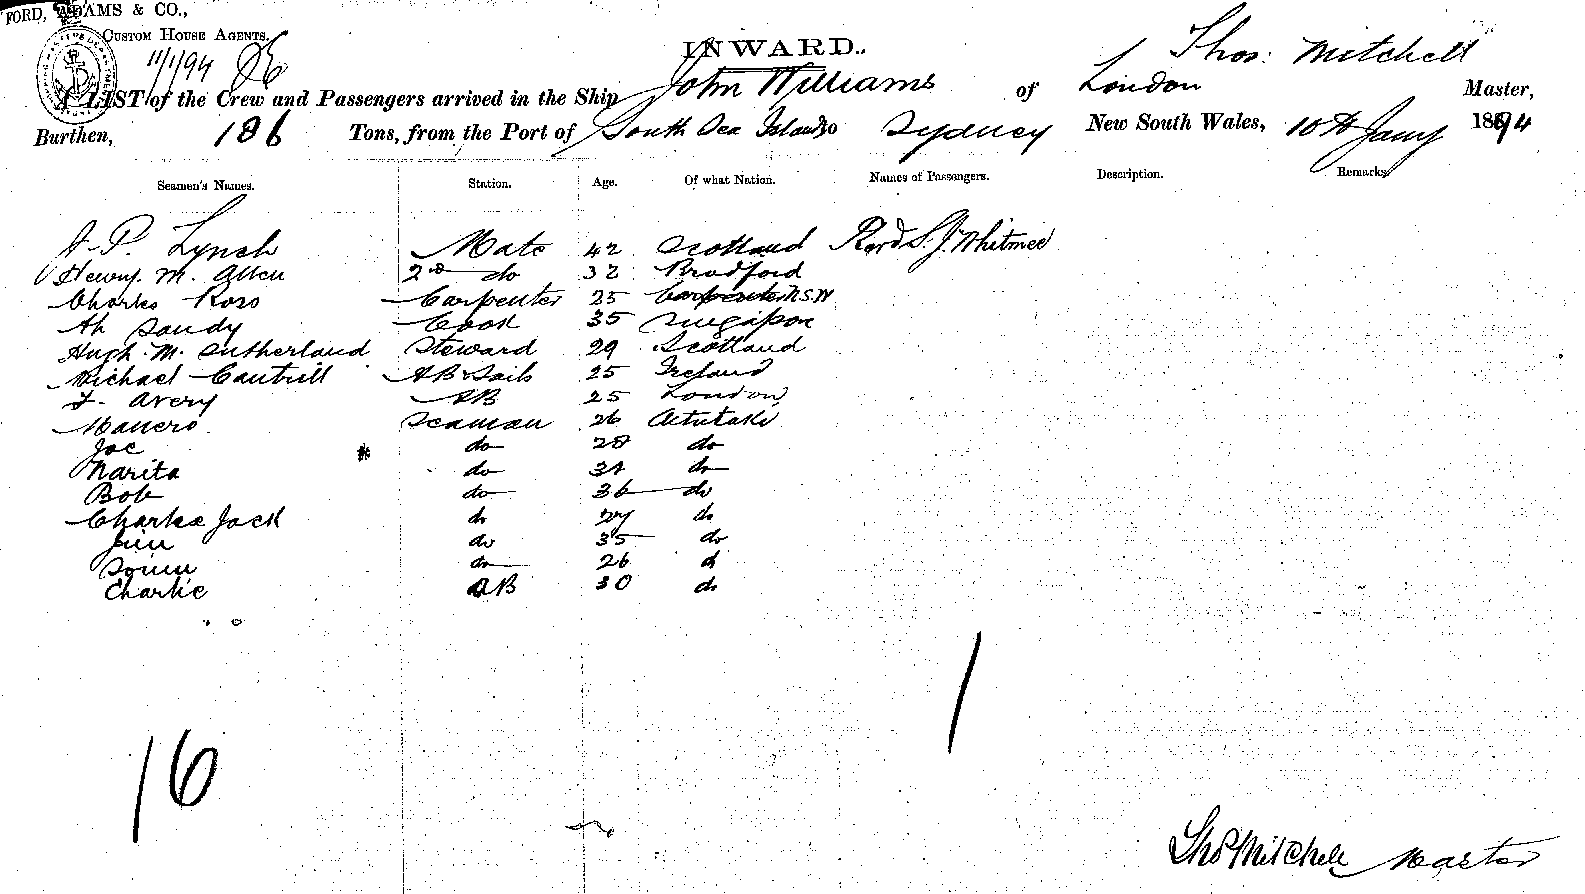 FORD, ADAMS & CO.,
CUSTOM HOUSE AGENTS.
11/1/94
INWARD.
Thos: Mitchell
A LIST of the Crew and Passengers arrived in the Ship John Williams of London Master,
Burthen, 186 Tons, from the Port of South Sea Islands to Sydney New South Wales, 10th Jany 1894
Seamen's Names. Station. Age. Of what Nation. Names of Passengers. Description. Remarks
P. Lynch Mate 42 Scotland Revd S. J. Whitmee
Henry. M. Allen 2nd do 32 Bradford
Charles Ross Carpenter 25 Carpenter N.S.W
Ah Sandy Cook 35 Singapore
Hugh. M. Sutherland Steward 29 Scotland
Michael Cantrill AB & Sails 25 Ireland
Avery AB 25 London
Seaman 26 Aitutaki
Joe do 28 do
Narita do do
Bob do 36 do
Charlie Jack do 27 do
Jim do 35 do
do 26 do
Charlie AB 30 do
16
1
Thos Mitchell Master